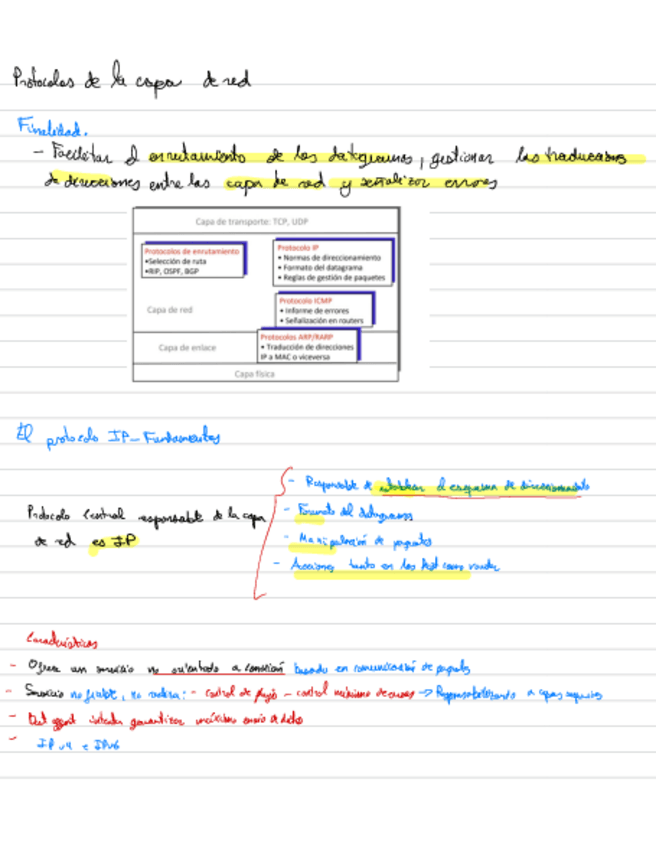 Protocolos de la capa de red
Finalidad.
- Facilitar el enrutamiento de los datagramas, gestionar las traducciones
de direcciones entre las capa de red y señalizar errores
Capa de transporte: TCP, UDP
Protocolos de enrutamiento
•Selección de ruta
•RIP, OSPF, BGP
Protocolo IP
• Normas de direccionamiento
• Formato del datagrama
• Reglas de gestión de paquetes
Capa de red
Protocolo ICMP
• Informe de errores
• Señalización en routers
Protocolos ARP/RARP
• Traducción de direcciones
IP a MAC o viceversa
Capa de enlace
Capa física
El protocolo IP - Fundamentos
Protocolo central responsable de la capa
de red es IP
- Responsable de establecer el esquema de direccionamiento
- Formato del datagramas
- Manipulación de paquetes
- Acciones tanto en los host como router
Características
- Ofrece un servicio no orientado a conexión basado en comunicación de paquetes
- Servicio no fiable, no realiza: - control de flujo - control de errores → a capas superiores
- intenta garantizar máximo envío de datos
- IPv4 e IPv6